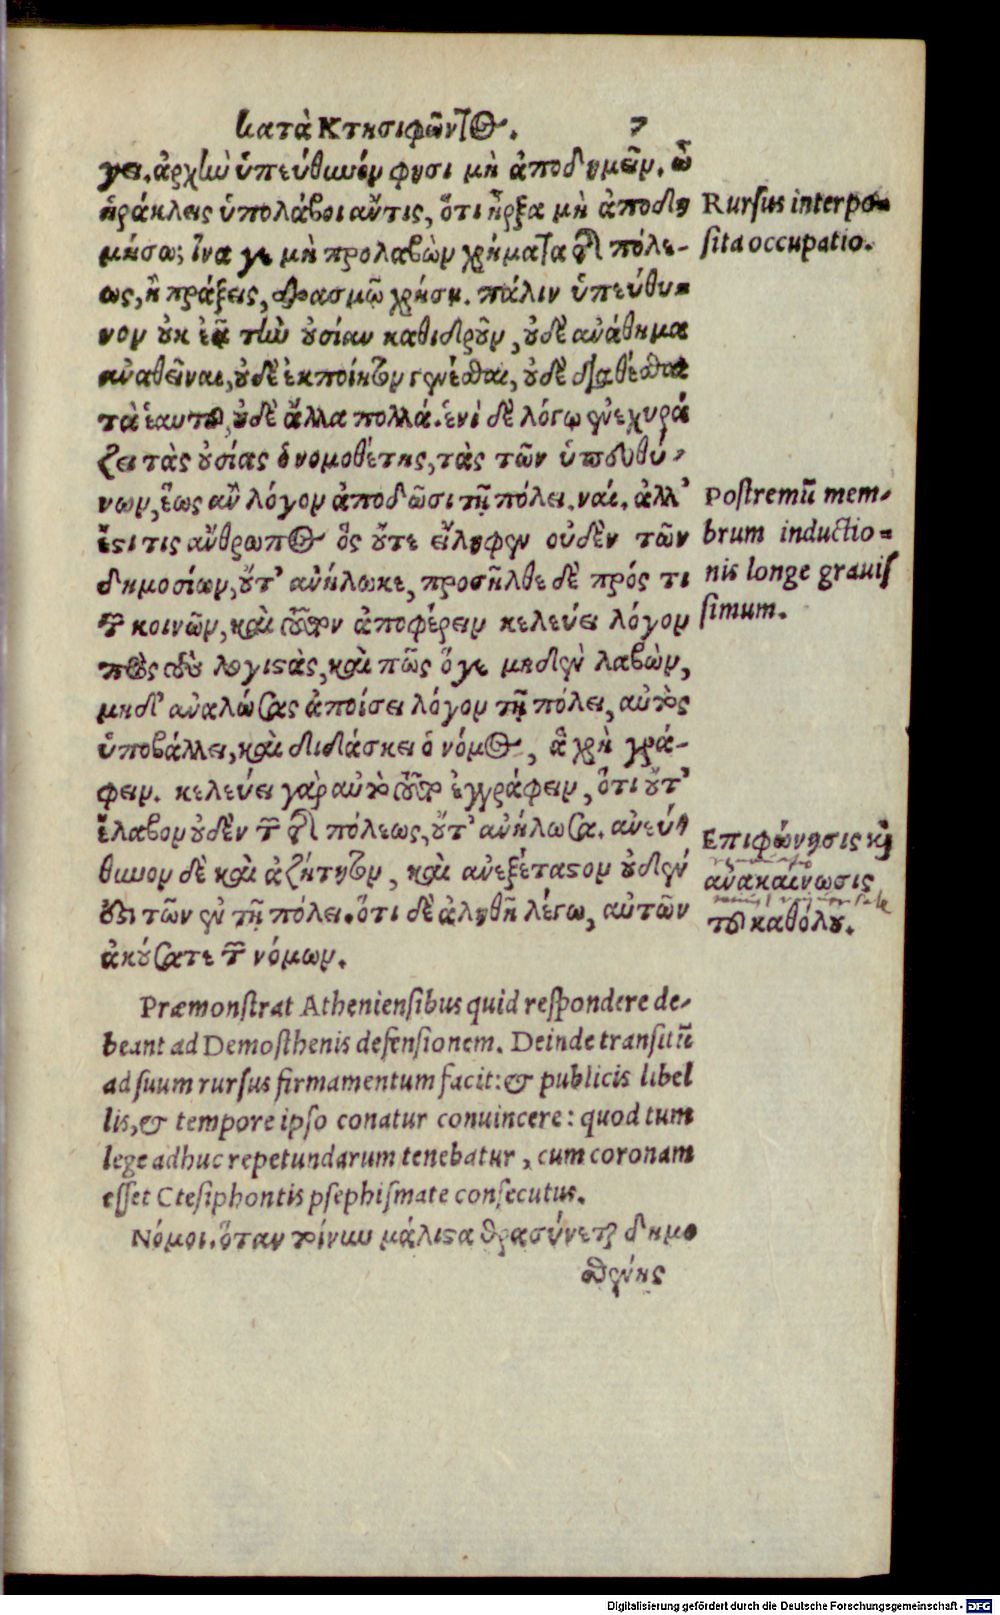 κατὰ Κτησιφῶντος. 7
γει. ἀρχὴν ὑπεύθυνόν φησι μὴ ἀποδημεῖν. ὦ
ἡράκλεις ὑπολάβοι ἄν τις, ὅτι ἦρξα μὴ ἀποδη
μήσω; ἵνα γε μὴ προλαβὼν χρήματα τῆς πόλε-
ως, ἢ πράξεις, δρασμῷ χρήσῃ. πάλιν ὑπεύθυ-
νον οὐκ ἐᾷ τὴν οὐσίαν καθιεροῦν, οὐδὲ ἀνάθημα
ἀναθεῖναι, οὐδὲ ἐκποίητον γενέσθαι, οὐδὲ διαθέσθαι
τὰ ἑαυτοῦ, οὐδὲ ἄλλα πολλά. ἑνὶ δὲ λόγῳ ἐνεχυρά
ζει τὰς οὐσίας ὁ νομοθέτης, τὰς τῶν ὑπευθύ-
νων, ἕως ἂν λόγον ἀποδῶσι τῇ πόλει. ναί. ἀλλ'
ἔστι τις ἄνθρωπος ὃς οὔτε εἴληφεν οὐδὲν τῶν
δημοσίων, οὔτ' ἀνήλωκε, προσῆλθε δὲ πρός τι
τῶν κοινῶν, καὶ τοῦτον ἀποφέρειν κελεύει λόγον
πρὸς τοὺς λογιστὰς, καὶ πῶς ὅγε μηδὲν λαβὼν,
μηδ' ἀναλώσας ἀποίσει λόγον τῇ πόλει, αὐτὸς
ὑποβάλλει, καὶ διδάσκει ὁ νόμος, ἃ χρὴ γρά-
φειν. κελεύει γὰρ αὐτὸ τοῦτο ἐγγράφειν, ὅτι οὔτ'
ἔλαβον οὐδὲν τῶν τῆς πόλεως, οὔτ' ἀνήλωσα. ἀνεύ-
θυνον δὲ καὶ ἀζήτητον, καὶ ἀνεξέταστον οὐδέν
ἐστι τῶν ἐν τῇ πόλει. ὅτι δὲ ἀληθῆ λέγω, αὐτῶν
ἀκούσατε τῶν νόμων.
Rursus interpo-
sita occupatio.
Postremũ mem-
brum inductio-
nis longe grauis
simum.
Επιφώνησις καὶ
ἀνακαίνωσις
τοῦ καθόλου.
Præmonstrat Atheniensibus quid respondere de-
beant ad Demosthenis defensionem. Deinde transitũ
ad suum rursus firmamentum facit: & publicis libel
lis, & tempore ipso conatur conuincere: quod tum
lege adhuc repetundarum tenebatur, cum coronam
esset Ctesiphontis psephismate consecutus.
Νόμοι. ὅταν τοίνυν μάλιστα θρασύνεται δημο
σθένης
Digitalisierung gefördert durch die Deutsche Forschungsgemeinschaft - DFG